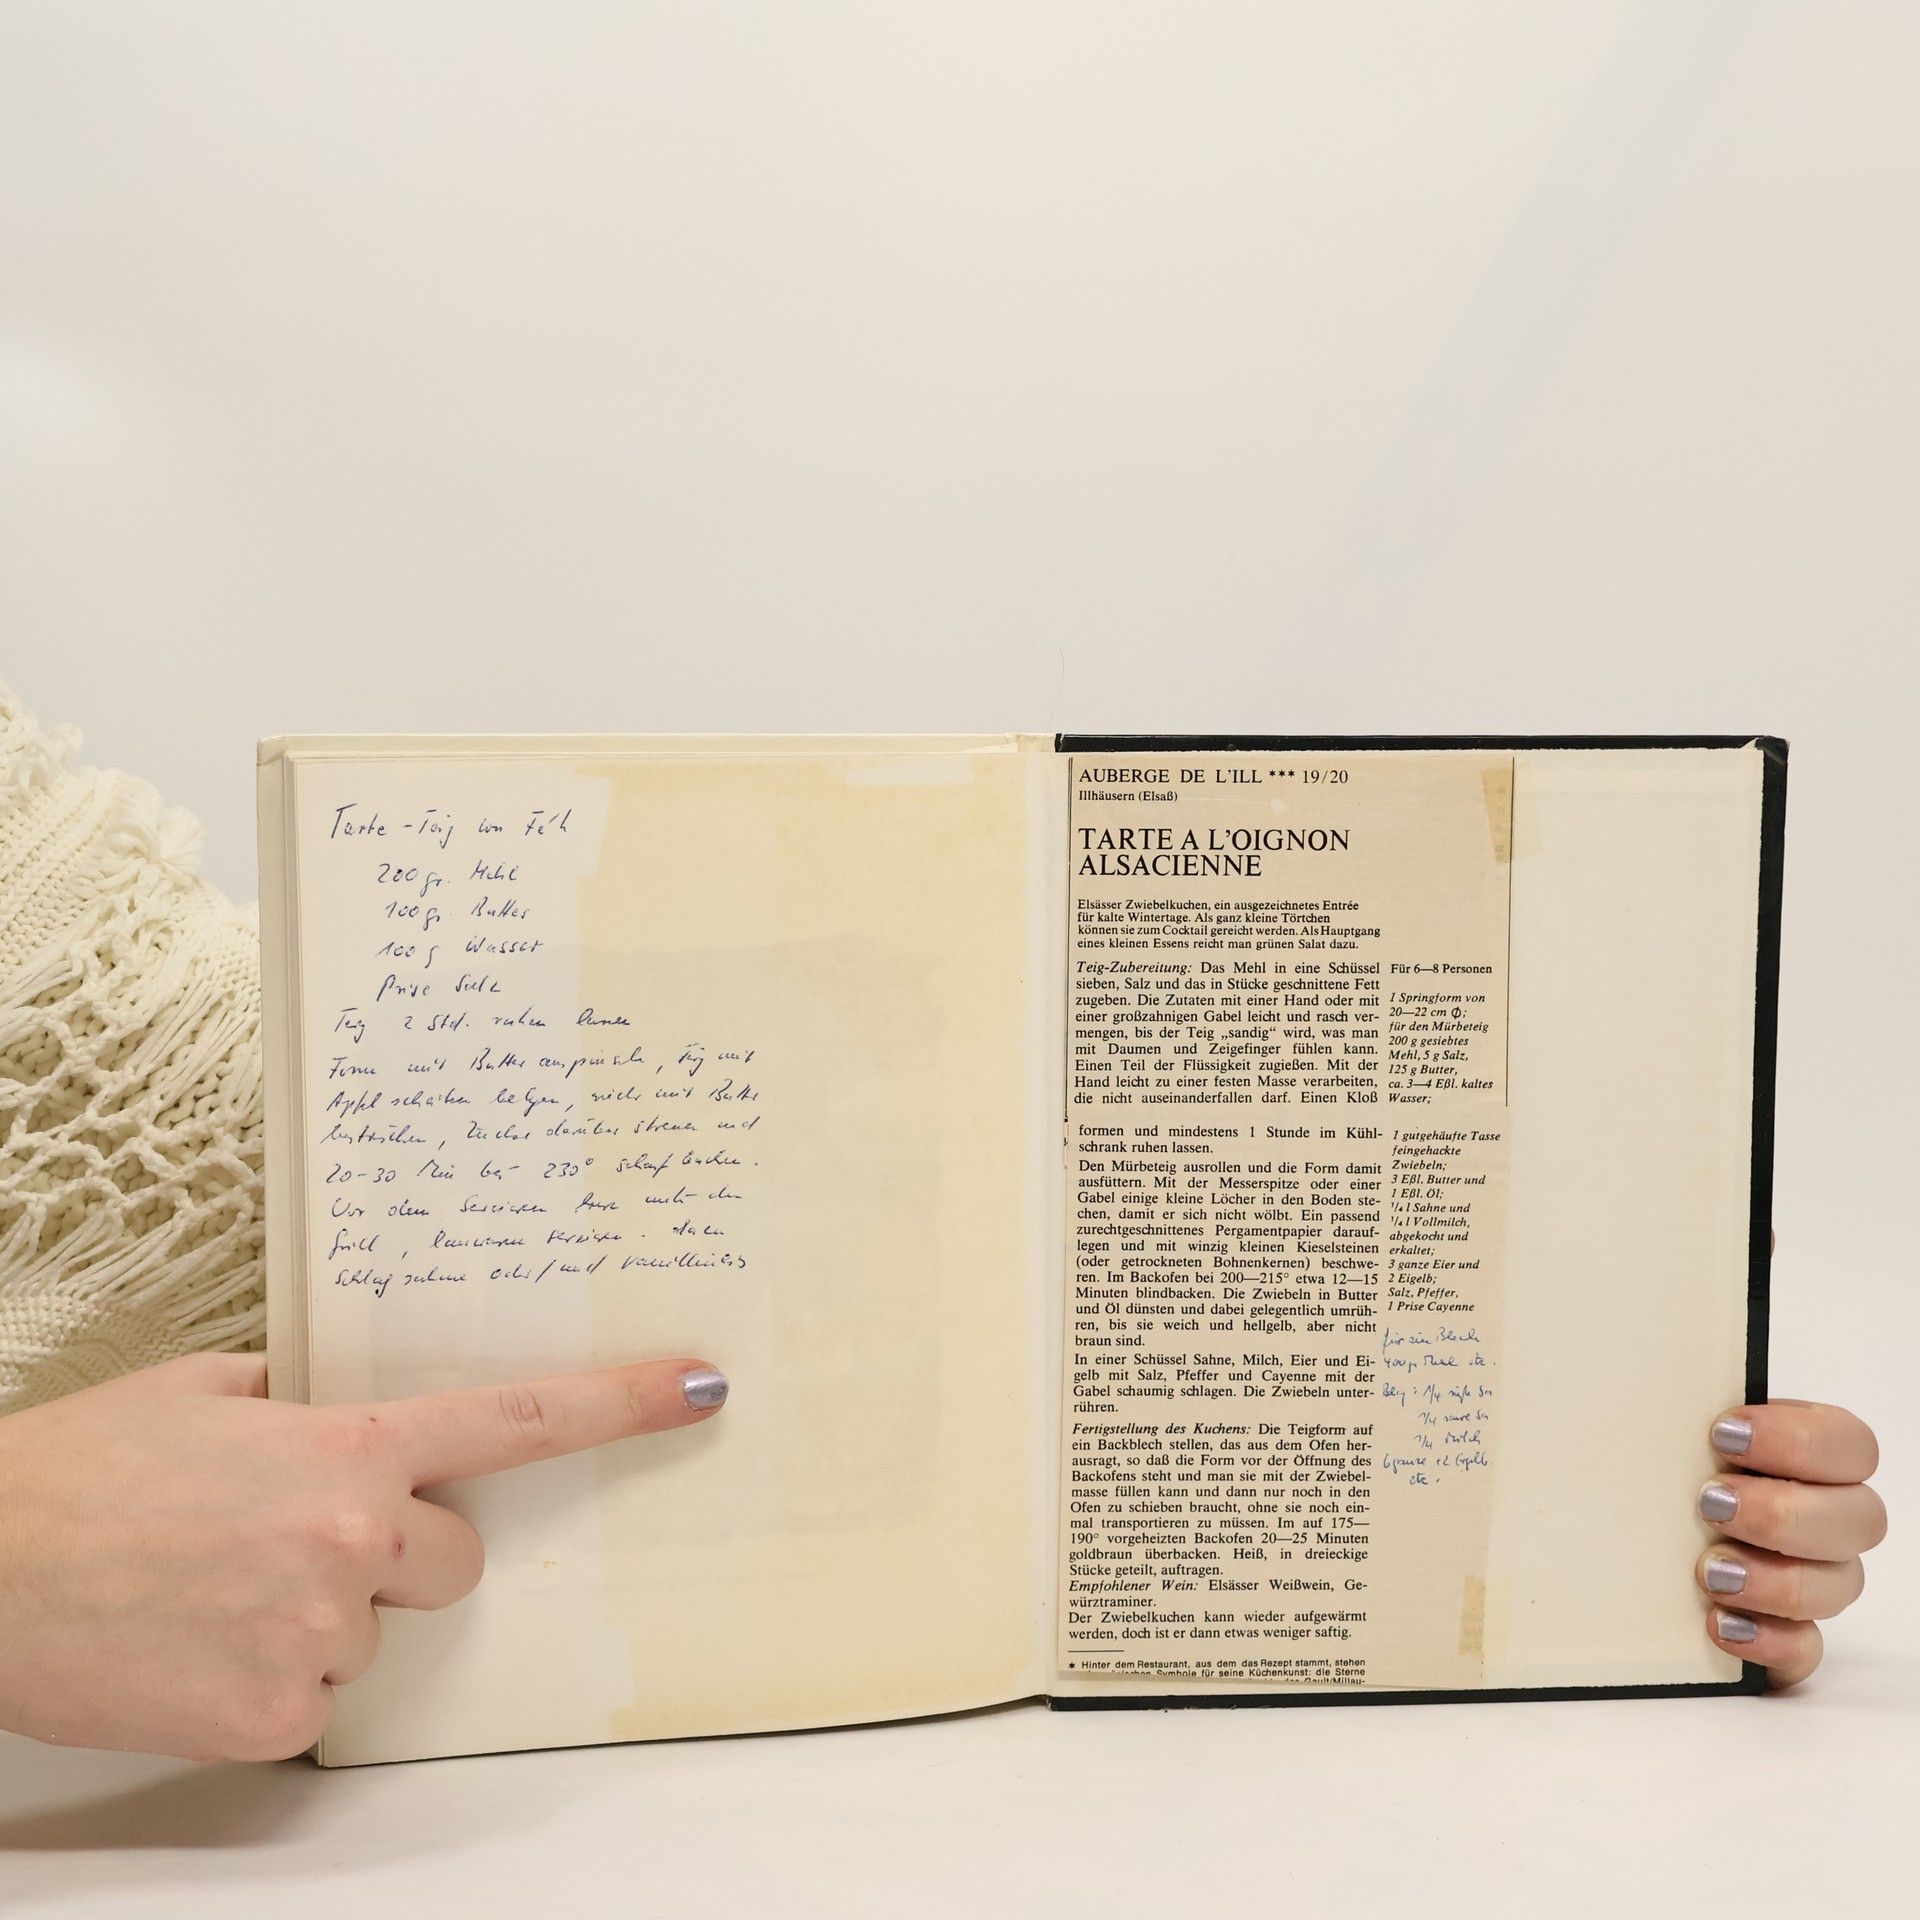 Tarte-Teig von Féh
200 gr. Mehl
100 gr. Butter
100 g Wasser
Prise Salz
Teig 2 Std. ruhen lassen
Form mit Butter auspinseln, Teig mit
Apfelscheiben belegen, mit Butter
bestreichen, Zucker darüber streuen und
20-30 Min bei 230° scharf backen.
Vor dem Servieren kurz unter den
Grill, lauwarm servieren. dazu
Schlagsahne oder/und Vanilleeis
AUBERGE DE L'ILL *** 19/20
Illhäusern (Elsaß)
TARTE A L'OIGNON
ALSACIENNE
Elsässer Zwiebelkuchen, ein ausgezeichnetes Entrée
für kalte Wintertage. Als ganz kleine Törtchen
können sie zum Cocktail gereicht werden. Als Hauptgang
eines kleinen Essens reicht man grünen Salat dazu.
Teig-Zubereitung: Das Mehl in eine Schüssel
sieben, Salz und das in Stücke geschnittene Fett
zugeben. Die Zutaten mit einer Hand oder mit
einer großzahnigen Gabel leicht und rasch ver-
mengen, bis der Teig „sandig“ wird, was man
mit Daumen und Zeigefinger fühlen kann.
Einen Teil der Flüssigkeit zugießen. Mit der
Hand leicht zu einer festen Masse verarbeiten,
die nicht auseinanderfallen darf. Einen Kloß
formen und mindestens 1 Stunde im Kühl-
schrank ruhen lassen.
Den Mürbeteig ausrollen und die Form damit
ausfüttern. Mit der Messerspitze oder einer
Gabel einige kleine Löcher in den Boden ste-
chen, damit er sich nicht wölbt. Ein passend
zurechtgeschnittenes Pergamentpapier darauf-
legen und mit winzig kleinen Kieselsteinen
(oder getrockneten Bohnenkernen) beschwe-
ren. Im Backofen bei 200—215° etwa 12—15
Minuten blindbacken. Die Zwiebeln in Butter
und Öl dünsten und dabei gelegentlich umrüh-
ren, bis sie weich und hellgelb, aber nicht
braun sind.
In einer Schüssel Sahne, Milch, Eier und Ei-
gelb mit Salz, Pfeffer und Cayenne mit der
Gabel schaumig schlagen. Die Zwiebeln unter-
rühren.
Fertigstellung des Kuchens: Die Teigform auf
ein Backblech stellen, das aus dem Ofen her-
ausragt, so daß die Form vor der Öffnung des
Backofens steht und man sie mit der Zwiebel-
masse füllen kann und dann nur noch in den
Ofen zu schieben braucht, ohne sie noch ein-
mal transportieren zu müssen. Im auf 175—
190° vorgeheizten Backofen 20—25 Minuten
goldbraun überbacken. Heiß, in dreieckige
Stücke geteilt, auftragen.
Empfohlener Wein: Elsässer Weißwein, Ge-
würztraminer.
Der Zwiebelkuchen kann wieder aufgewärmt
werden, doch ist er dann etwas weniger saftig.
* Hinter dem Restaurant, aus dem das Rezept stammt, stehen
Symbole für seine Küchenkunst: die Sterne
Gault/Millau-
Für 6—8 Personen
1 Springform von
20—22 cm Φ;
für den Mürbeteig
200 g gesiebtes
Mehl, 5 g Salz,
125 g Butter,
ca. 3—4 Eßl. kaltes
Wasser;
1 gutgehäufte Tasse
feingehackte
Zwiebeln;
3 Eßl. Butter und
1 Eßl. Öl;
1/4 l Sahne und
1/4 l Vollmilch,
abgekocht und
erkaltet;
3 ganze Eier und
2 Eigelb;
Salz, Pfeffer,
1 Prise Cayenne
für ein Blech
400 gr Mehl etc.
1/4
1/4 saure
1/4 Milch
6 ganze +2 Eigelb
etc.